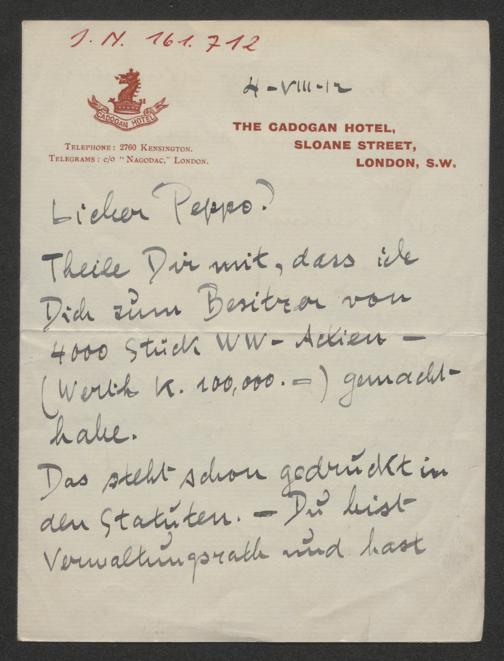 J. N. 161.712
CADOGAN HOTEL
TELEPHONE: 2760 KENSINGTON.
TELEGRAMS: c/o "NAGODAC," LONDON.
4-VIII-12
THE CADOGAN HOTEL,
SLOANE STREET,
LONDON, S.W.
Lieber Peppo!
Theile Dir mit, dass ich
Dich zum Besitzer von
4000 Stück WW-Actien –
(Werth K. 100,000.–) gemacht
habe.
Das steht schon gedruckt in
den Statuten. – Du bist
Verwaltungsrath und hast